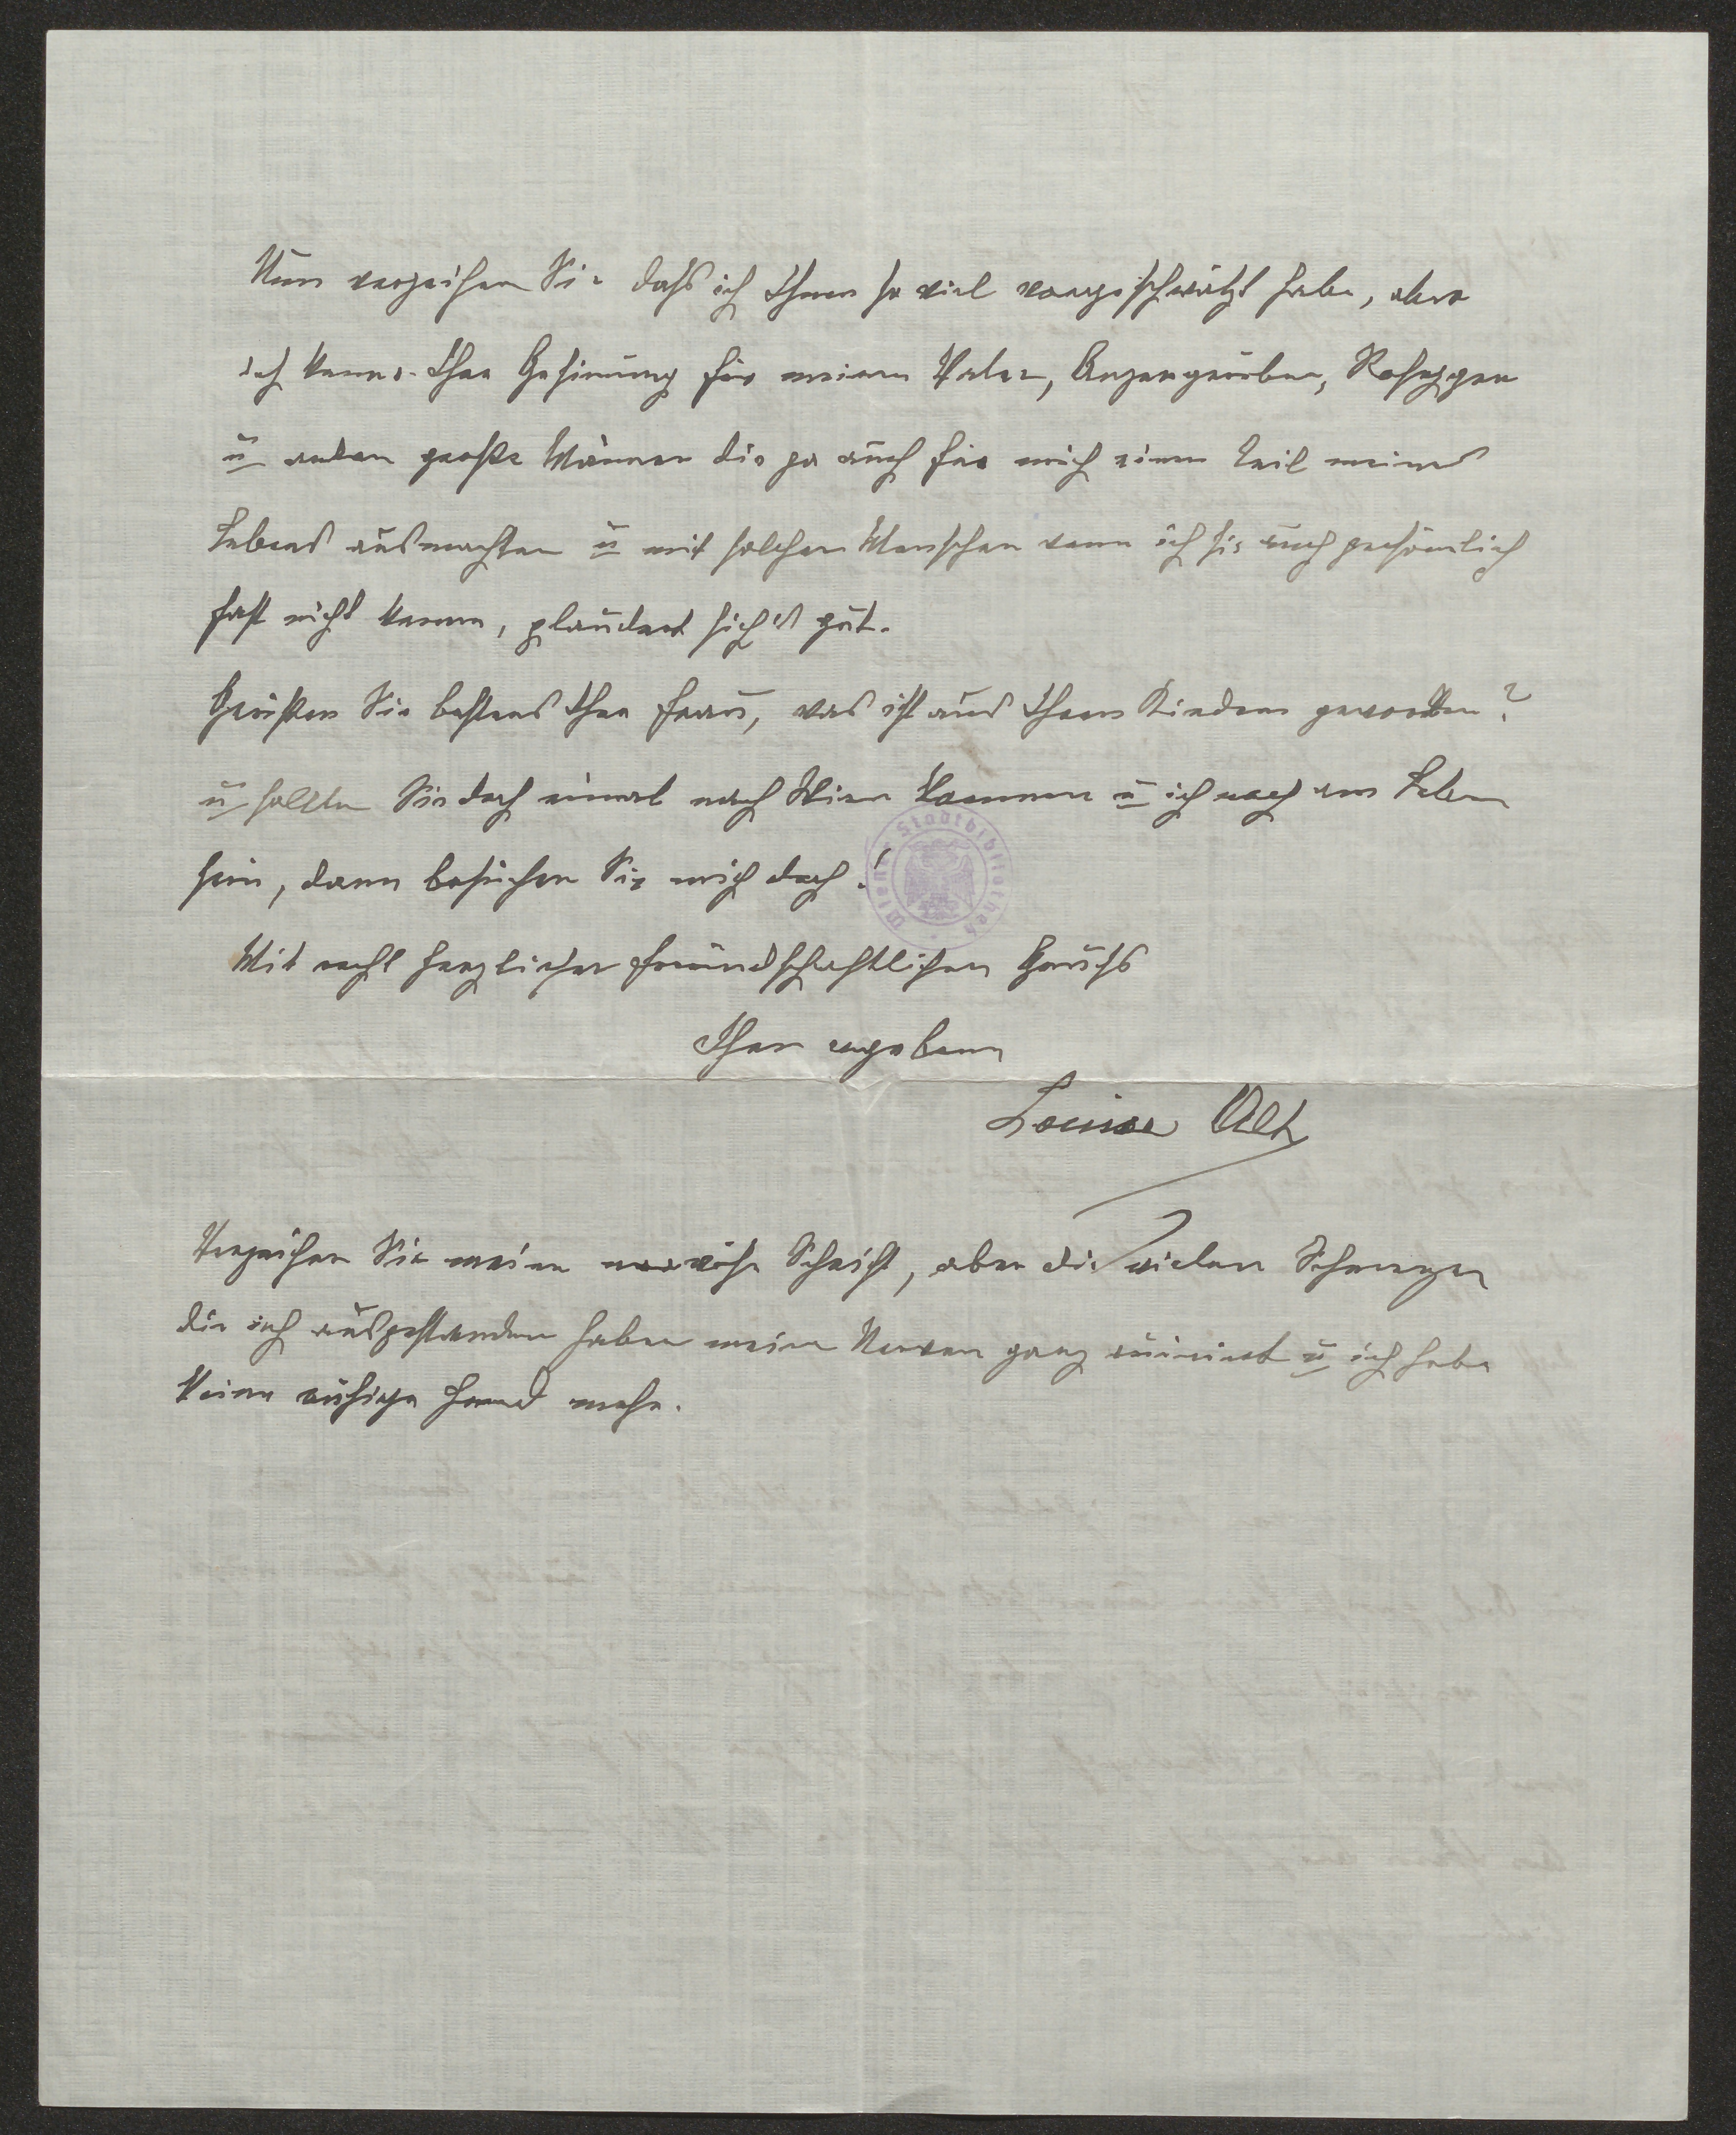 Nun verzeihen Sie daß ich Ihnen so viel vorgeschwätzt habe, aber
ich kenne Ihre Gesinnung für meinen Vater, Anzengruber, Rosegger
u andere große Männer die ja auch für mich einen Teil meines
Lebens ausmachten u mit solchen Menschen wenn ich sie auch persönlich
fast nicht kenne, plaudert sich's gut.
Grüßen Sie bestens Ihre Frau, was ist aus Ihren Kindern geworden?
u sollten Sie doch einmal nach Wien kommen u ich noch am Leben
sein, dann besuchen Sie mich doch!
Wiener Stadtbibliothek
Mit recht herzlichen freundschaftlichen Gruß
Ihre ergebene
Louise Alt
Verzeihen Sie meine Schrift, aber die vielen Schmerzen
die ich ausgestanden haben meine Nerven ganz ruiniert u ich habe
keine ruhige Hand mehr.